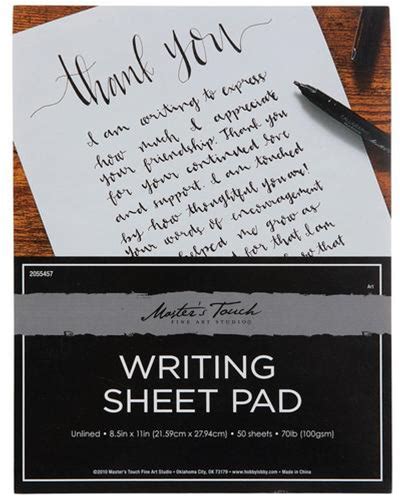 thank you
I am writing to express
how much I appreciate
your friendship. Thank you
for your continued love
and support. I am touched
by how thoughtful you are!
Your words of encouragement
helped me grow as
for that I am
so that
2055457
Art
Master's Touch
FINE ART STUDIO
WRITING
SHEET PAD
Unlined • 8.5in x 11in (21.59cm x 27.94cm) • 50 sheets • 70lb (100gsm)
©2010 Master's Touch Fine Art Studio • Oklahoma City, OK 73179 • www.hobbylobby.com • Made in China